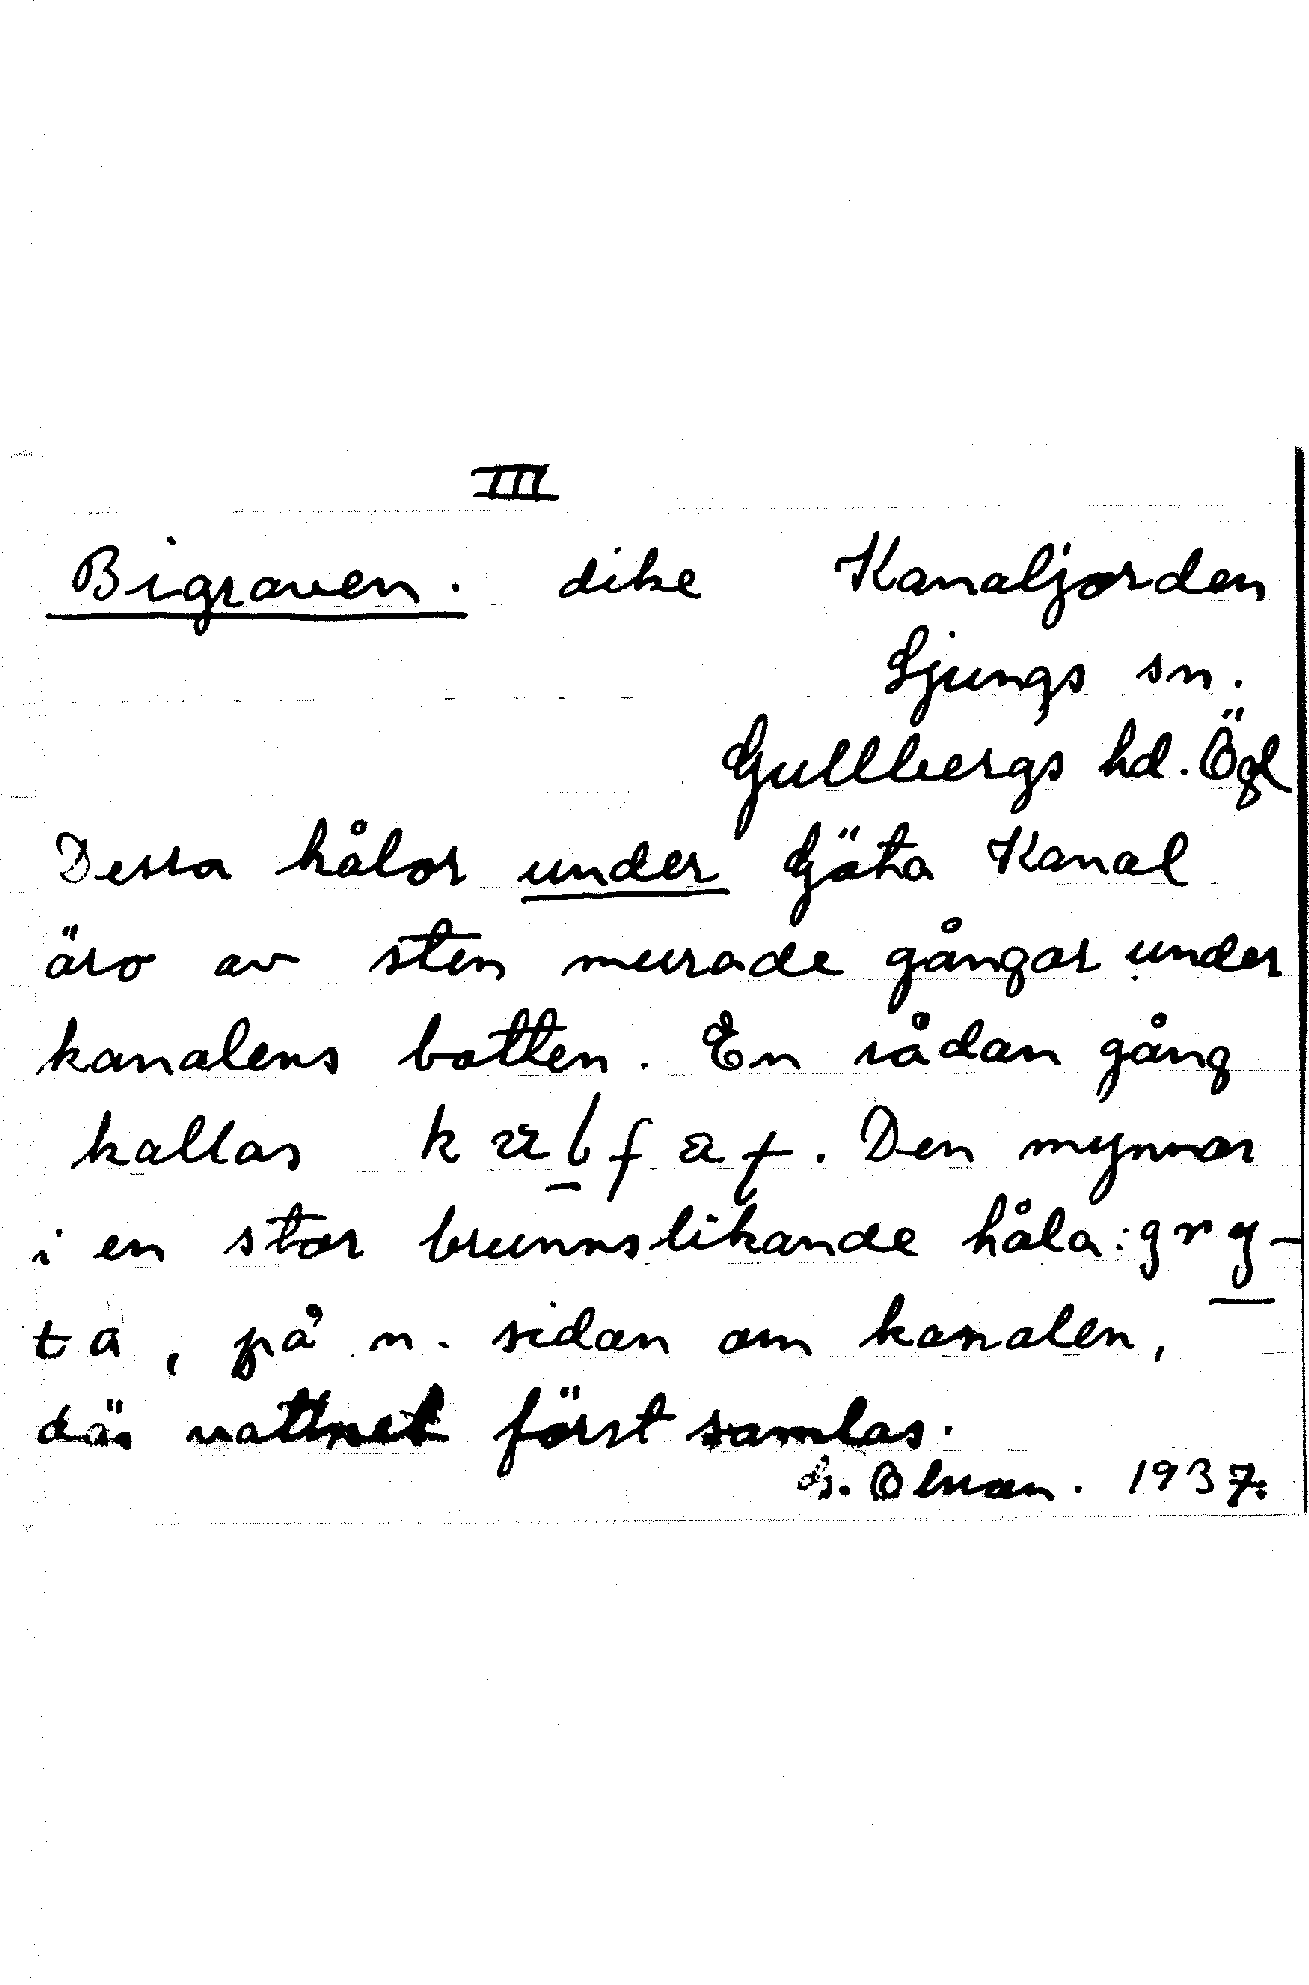 III
Bigraven. dike Kanaljorden
Ljungs sn.
Gullbergs hd. Ögl
Dessa hålor under Göta Kanal
äro av sten murade gångar under
kanalens botten. En sådan gång
kallas Den mynnar
i en stor brunnslikande håla: gry-
ta, på n. sidan om kanalen,
där vattnet först samlas.
G. Olsson. 1937.